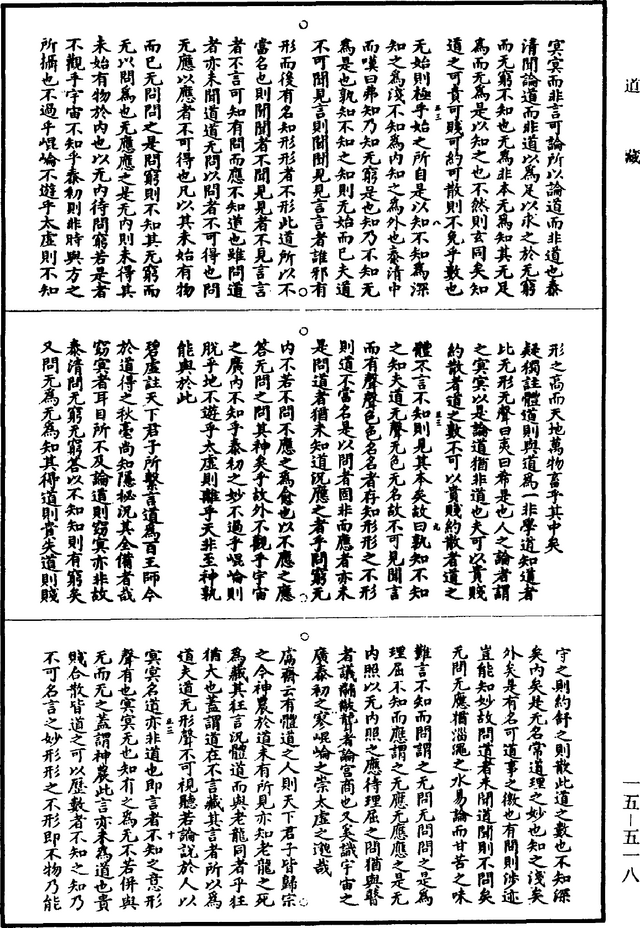 道藏
冥冥而非言可論所以論道而非道也泰
清聞論道而非道以為足以求之於无窮
而无窮不知也无為非本无為知其无足
為而无為是以知之也不然則玄同矣知
道之可貴可賤可約可散則不免乎數也
无始則極乎始之所自是以知不知為深
知之為淺不知為內知之為外也泰清中
而嘆曰弗知乃知无窮是也知乃不知无
為是也孰知不知之知則无始而已夫道
不可聞見言則聞聞見見言言者誰邪有
形而後有名知形形者不形此道所以不
當名也則聞聞者不聞見見者不見言言
者不言可知有問而應不知道也雖問道
者亦未聞道道无問以問者不可得也問
无應以應者不可得也凡以其未始有物
而已无問問之是問窮則不知其无窮而
无以問為也无應應之是无內則未得其
未始有物於內也以无內待問窮若是者
不觀乎宇宙不知乎泰初則非時與方之
所攝也不過乎崐崘不遊乎太虛則不知
形之高而天地萬物畜乎其中矣
疑獨註體道則與道為一非學道知道者
比无形无聲曰夷曰希是也人之論者謂
之冥冥以是論道猶非道也夫可以貴賤
約散者道之數不可以貴賤約散者道之
體不言不知則見其本矣故曰孰知不知
之知夫道无聲无色无名故不可見聞言
而有聲聲色色名名者存知形形之不形
則道不當名是以問者固非而應者亦未
是問道者猶未知道況應之者乎問窮无
內不若不問不應之為愈也以不應之應
答无問之問其神矣乎故外不觀乎宇宙
之廣內不知乎泰初之妙不過乎崐崘則
脫乎地不遊乎太虛則離乎天非至神孰
能與於此
碧虛註天下君子所繫言道為百王師今
於道得之秋毫尚知隱祕況其全備者哉
窈冥者耳目所不及論道則窈冥亦非故
泰清問无窮无窮答以不知知則有窮矣
又問无為无為知其得道則貴失道則賤
守之則約舒之則散此道之數也不知深
矣內矣是无名常道理之妙也知之淺矣
外矣是有名可道事之徼也有問則涉迹
豈能知妙故問道者未聞道聞則不問矣
无問无應猶淄澠之水易論而甘苦之味
難言不知而問謂之无問无問問之是為
理屈不知而應謂之无應无應應之是无
內照以无內照之應待理屈之問猶與瞽
者議黼黻聾者論宮商也又奚識宇宙之
廣泰初之寂崐崘之崇太虛之邈哉
鬳齋云有體道之人則天下君子皆歸宗
之今神農於道未有所見亦知老龍之死
為藏其狂言況體道而與老龍同者乎狂
猶大也蓋謂道在不言藏其言者所以為
道夫道无形聲不可視聽若論說於人以
冥冥名道亦非道也即言者不知之意形
聲有也冥冥无也知有之為无不若併與
无而无之蓋謂神農此言亦未為道也貴
賤合散皆道之可以歷數者不知之知乃
不可名言之妙形形之不形即不物乃能
一五—五一八